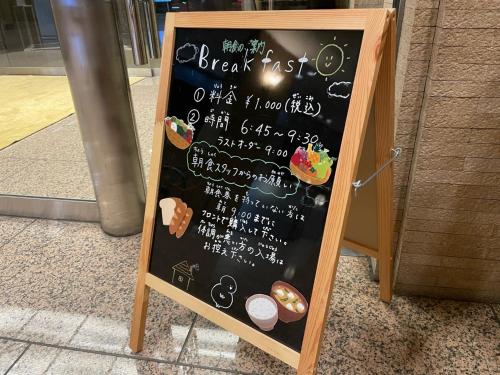 朝食のご案内
Breakfast
① 料金 ¥1,000(税込)
② 時間 6:45~9:30
ラストオーダー 9:00
朝食スタッフからのお願い
朝食券を持っていない方は
朝9:00までに
フロントで購入して下さい。
体調が悪い方の入場は
お控え下さい。